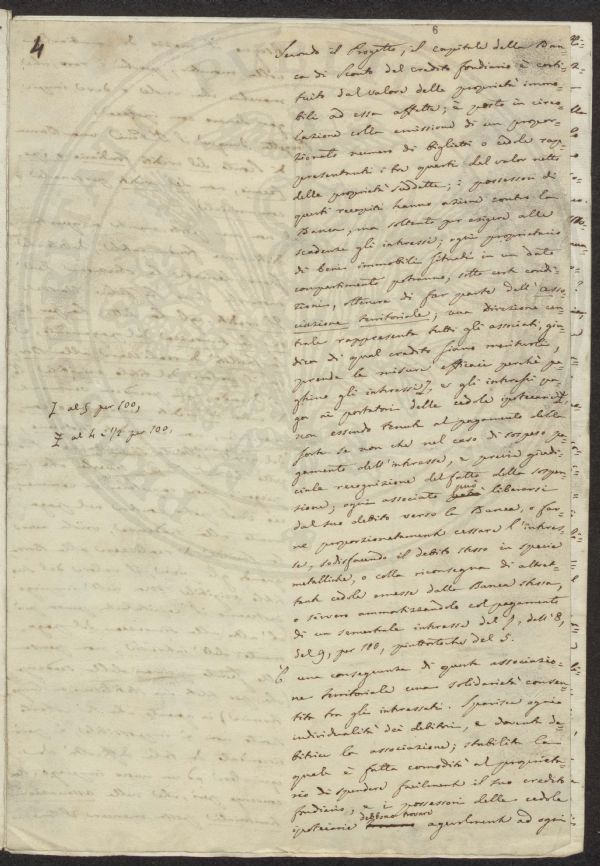 4
6
Secondo il Progetto, il capitale della Ban=
ca di Sconto del credito fondiario è costi=
tuito dal valore delle proprietà immo=
bili ad essa affette; è posto in circo=
lazione colla emissione di un propor=
zionato numero di biglietti o cedole rap=
presentanti i tre quarti del valor netto
delle proprietà suddette; i possessori di
questi recapiti hanno azione contro la
Banca, ma soltanto per esigere alle
scadenze gli interessi; ogni proprietario
di beni immobili situati in un dato
compartimento potranno, sotto certe condi=
zioni, ottenere di far parte dell'asso=
ciazione territoriale; una direzione cen=
trale rappresenta tutti gli associati, giu=
dica di qual credito siano meritevoli,
prende le misure efficaci perchè pa=
ghino gli interessi, e gli interessi pa=
ga ai portatori delle cedole ipotecarie
non essendo tenuta al pagamento della
sorte se non che nel caso di sospeso pa=
gamento dell'interesse, e previa giudi=
ciale recognizione del fatto della sospen=
sione; ogni associato può liberarsi
dal suo debito verso la Banca, o far=
ne proporzionatamente cessare l'interes=
se, sodisfacendo il debito stesso in specie
metalliche, o colla riconsegna di altret=
tante cedole emesse dalla Banca stessa,
o ovvero ammortizzandolo col pagamento
di un semestrale interesse del 7, dell'8,
del 9, per 100, piuttostochè del 5.
È una conseguenza di questa associazio=
ne territoriale una solidarietà consen=
tita tra gli interessati. Sparisce ogni
individualità dei debitori, e diventa de=
bitrice la associazione; stabilita la
quale è fatta comodità al proprieta=
rio di spendere facilmente il suo credito
fondiario, e i possessori delle cedole
ipotecarie debbono trovare agevolmente ad ogni
al 5 per 100,
al 4 e 1/2 per 100,